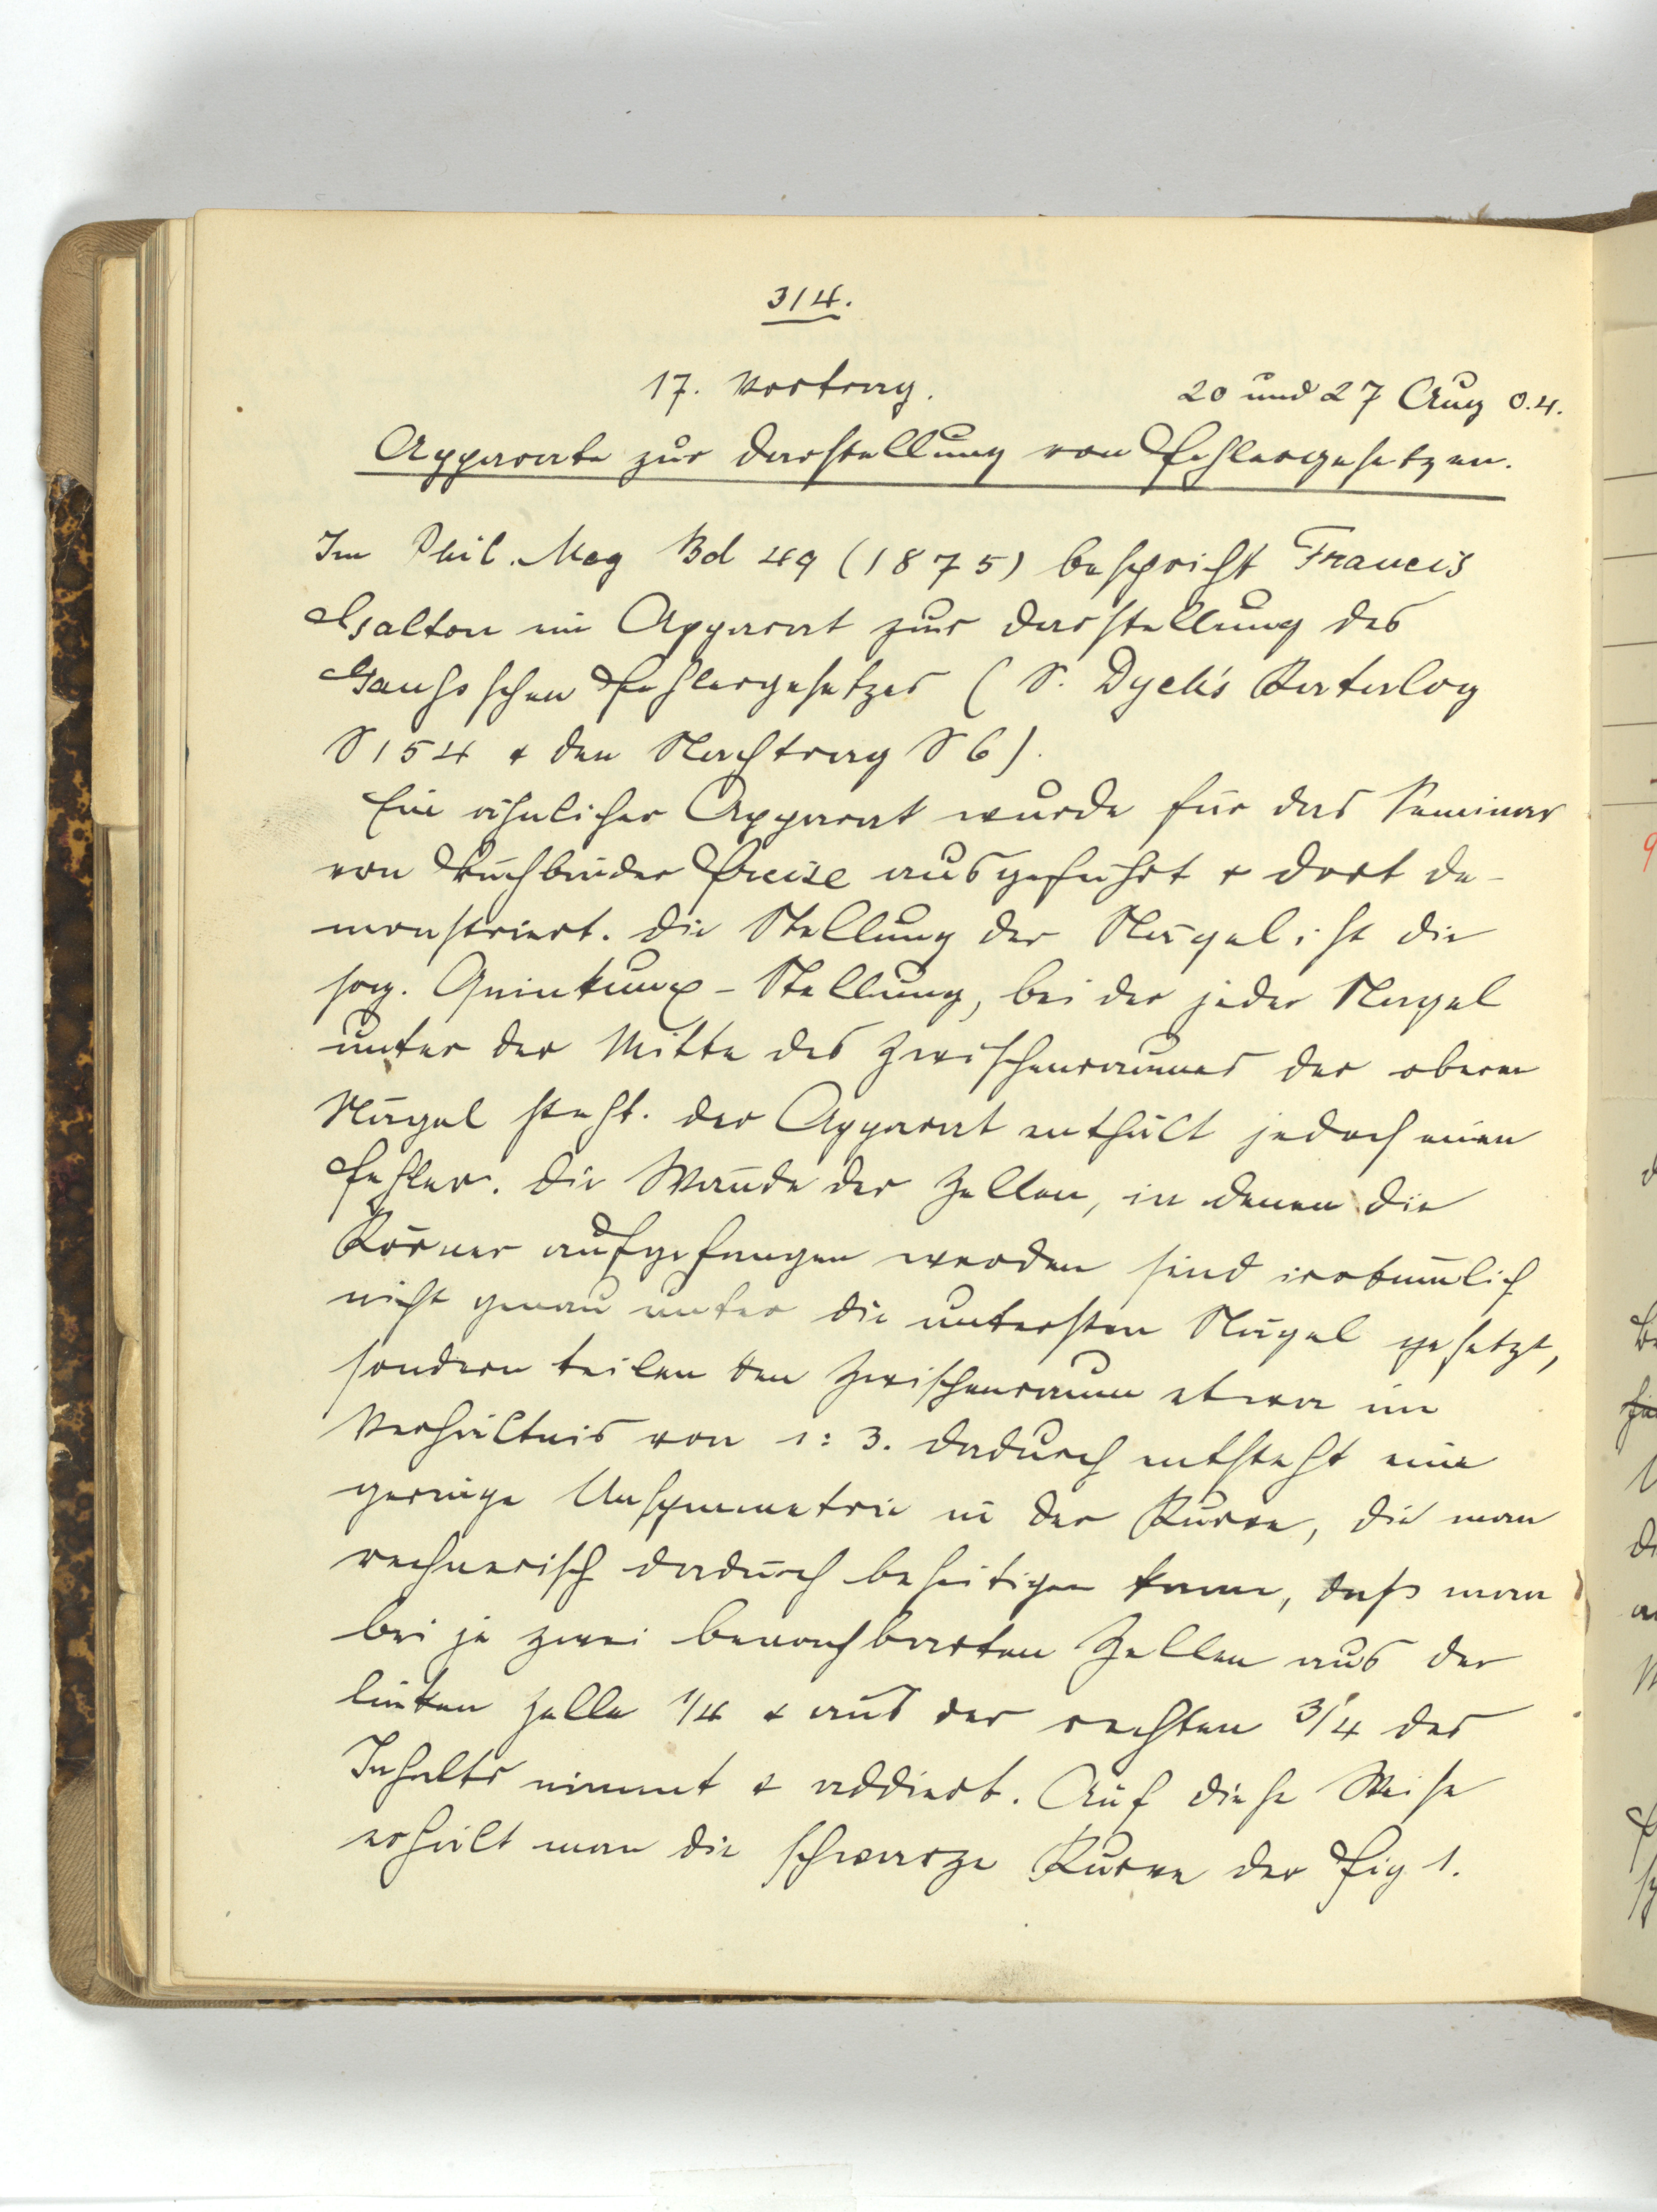 314.
17. Vortrag.
20 und 27 Aug 04.
Apparate zur Darstellung von Fehlergesetzen.
Im Phil. Mag Bd 49 (1875) bespricht Francis
Galton ein Apparat zur Darstellung des
Gaußschen Fehlergesetzes (S. Dyck's Katalog
S 154 & den Nachtrag S 6).
Ein ähnlicher Apparat wurde für das Seminar
von Buchbinder Preise ausgeführt & dort de-
monstriert. Die Stellung der Nägel ist die
sog. Quinkunx-Stellung, bei der jeder Nagel
unter der Mitte des Zwischenraumes der oberen
Nägel steht. Der Apparat enthält jedoch einen
Fehler. Die Wände der Zellen, in denen die
Körner aufgefangen werden sind irrtümlich
nicht genau unter die untersten Nägel gesetzt,
sondern teilen den Zwischenraum etwa im
Verhältnis von 1:3. Dadurch entsteht eine
geringe Unsymmetrie in der Kurve, die man
rechnerisch dadurch beseitigen kann, daß man
bei je zwei benachbarten Zellen aus der
linken Zelle 1/4 & aus der rechten 3/4 des
Inhalts nimmt & addiert. Auf diese Weise
erhält man die schwarze Kurve der Fig 1.